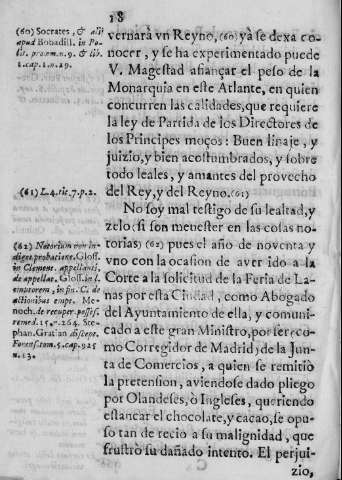 18
(60) Socrates, & alij
apud Bobadill. in Po-
lit. proœm. n. 9. & lib.
1. cap. 1. n. 29.
vernarà vn Reyno, (60) yà se dexa co-
nocer, y se ha experimentado puede
V. Magestad afiançar el peso de la
Monarquia en este Atlante, en quien
concurren las calidades, que requiere
la ley de Partida de los Directores de
los Principes moços: Buen linaje, y
juizio, y bien acostumbrados, y sobre
todo leales, y amantes del provecho
(61) L. 4. tit. 7. p. 2.
del Rey, y del Reyno. (61)
No soy mal testigo de su lealtad, y
zelo: (si son menester en las cosas no-
(62) Notorium non in-
diget probatione. Gloss.
in Clement. appellanti,
de appellat. Gloss. in l.
emptorem, in fin. C. de
actionibus empt. Me-
noch. de recuper. possess.
remed. 15. n. 264. Ste-
phan. Gratian discept.
Forens. tom. 5. cap. 925
n. 13.
torias) (62) pues el año de noventa y
vno con la ocasion de aver ido a la
Corte a la solicitud de la Feria de La-
nas por esta Ciudad, como Abogado
del Ayuntamiento de ella, y comuni-
cado a este gran Ministro, por ser (co-
mo Corregidor de Madrid) de la Jun-
ta de Comercios, a quien se remitiò
la pretension, aviendose dado pliego
por Olandeses, ò Ingleses, queriendo
estancar el chocolate, y cacao, se opu-
so tan de recio a su malignidad, que
frustrò su dañado intento. El perjui-
zio,